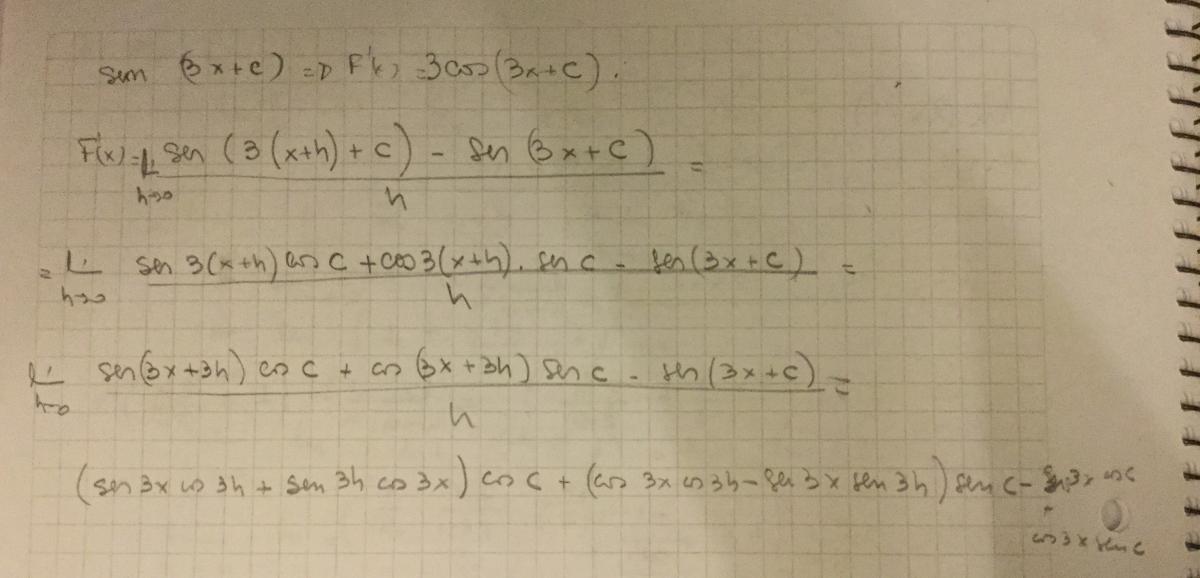 sen (3x+c) => F'(x) = 3cos(3x+c).
F'(x) = Li h→0 sen (3(x+h)+c) - sen (3x+c) / h =
= Li h→0 sen 3(x+h) cos c + cos 3(x+h) . sen c - sen (3x+c) / h =
Li h→0 sen(3x+3h) cos c + cos (3x+3h) sen c - sen (3x+c) / h =
(sen 3x cos 3h + sen 3h cos 3x) cos c + (cos 3x cos 3h - sen 3x sen 3h) sen c - sen 3x cos c
- cos 3x sen c